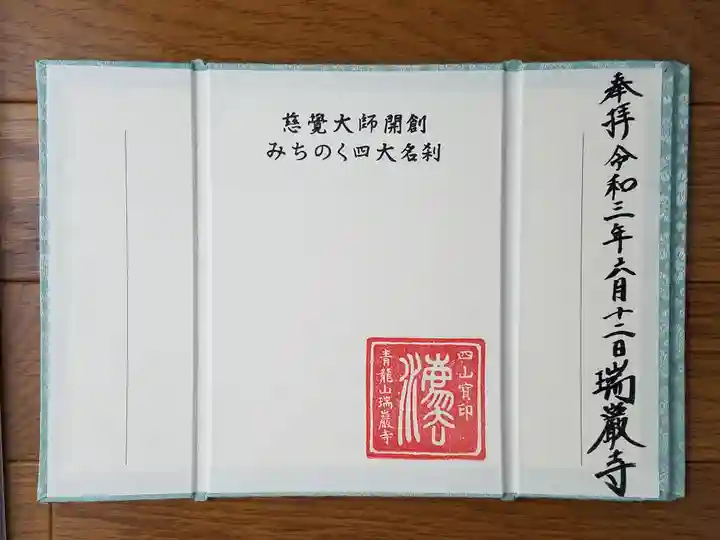 慈覺大師開創
みちのく四大名刹
奉拝令和三年六月十二日瑞巌寺
四山寳印
青龍山瑞巖寺